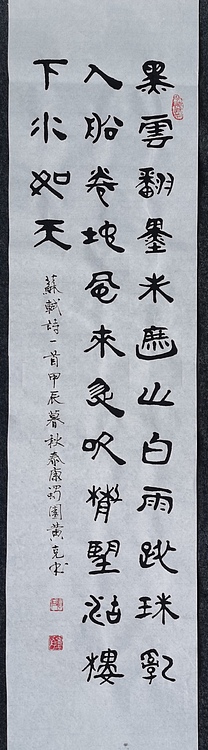 黑雲翻墨未遮山白雨跳珠亂
入船卷地風來忽吹散望湖樓
下水如天
蘇軾詩一首甲辰暮秋泰康蜀園黃克书